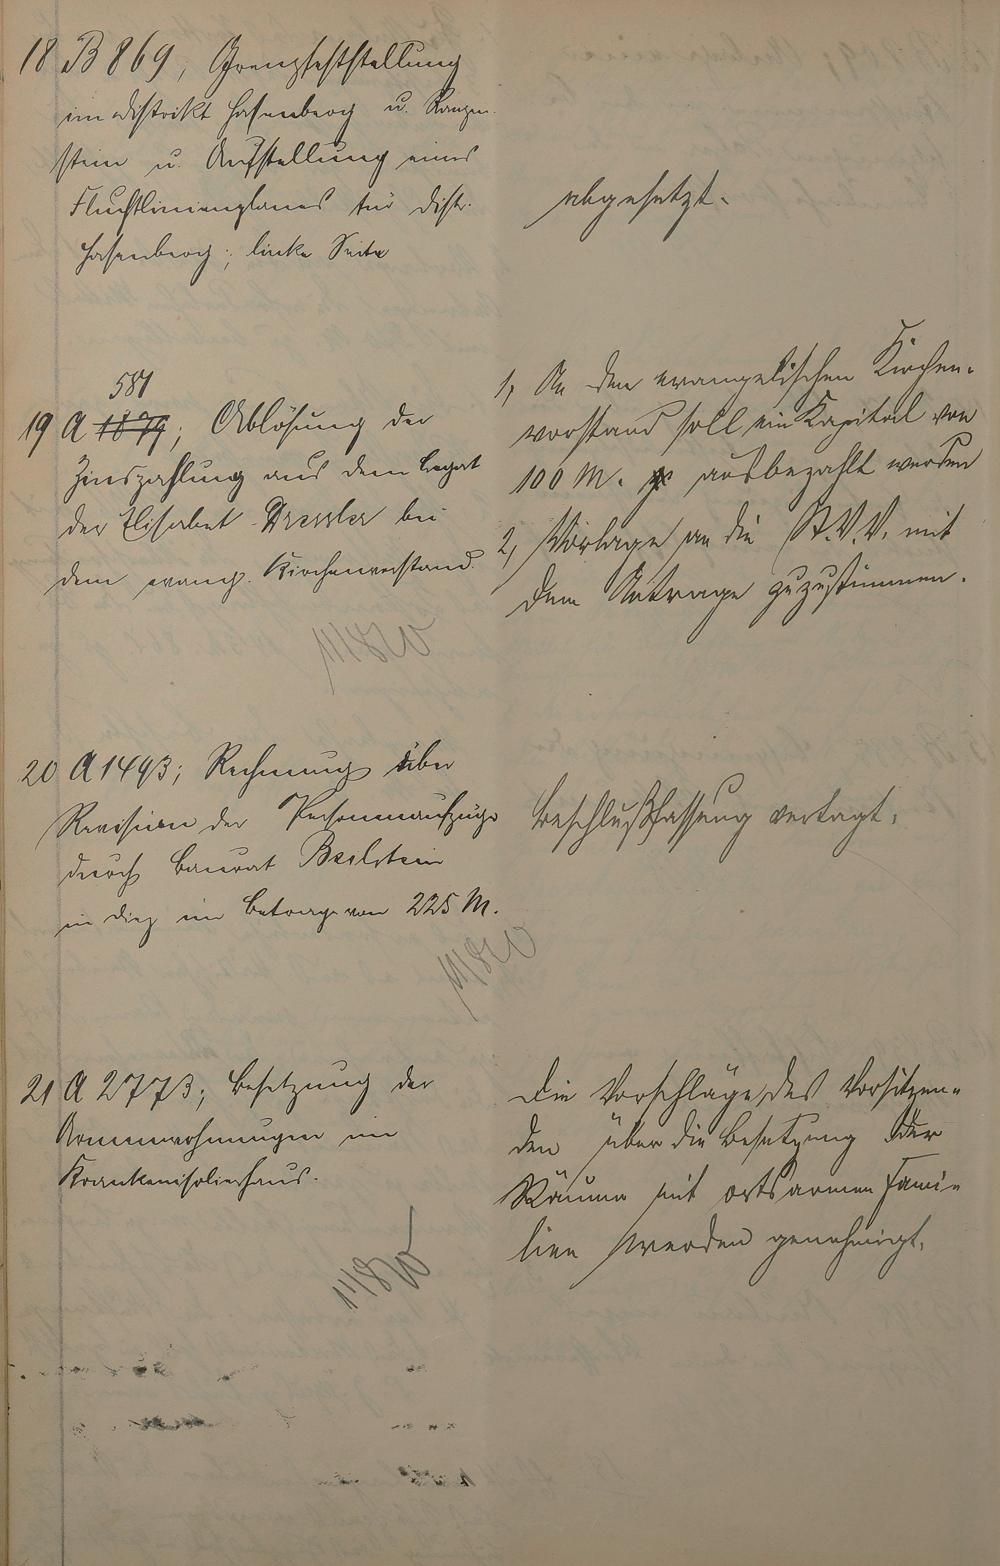 18 B 869, Grenzfeststellung
im Distrikt Hasenberg u. Rangen-
stein u. Aufstellung eines
Fluchtlinienplanes für Distr.
Hasenberg; linke Seite
abgesetzt.
581
19 A 1879; Ablösung der
Zinszahlung aus dem Legat
der Elisabet Dressler bei
dem evang. Kirchenvorstand.
1, An den evangelischen Kirchen-
vorstand soll ein Kapital von
100 M. ausbezahlt werden
2, Vorlage an die St. V. V. mit
dem Antrage zuzustimmen.
20 A 1493; Rechnung über
Revision der Personenaufzüge
durch Baurat Beilstein
in Diez im Betrage von 225 M.
Beschlußfassung vertagt.
21 A 2773; Besetzung der
Armenwohnungen im
Krankenisolierhaus.
Die Vorschläge des Vorsitzen-
den über die Besetzung der
Räume mit ortsarmen Fami-
lien werden genehmigt.